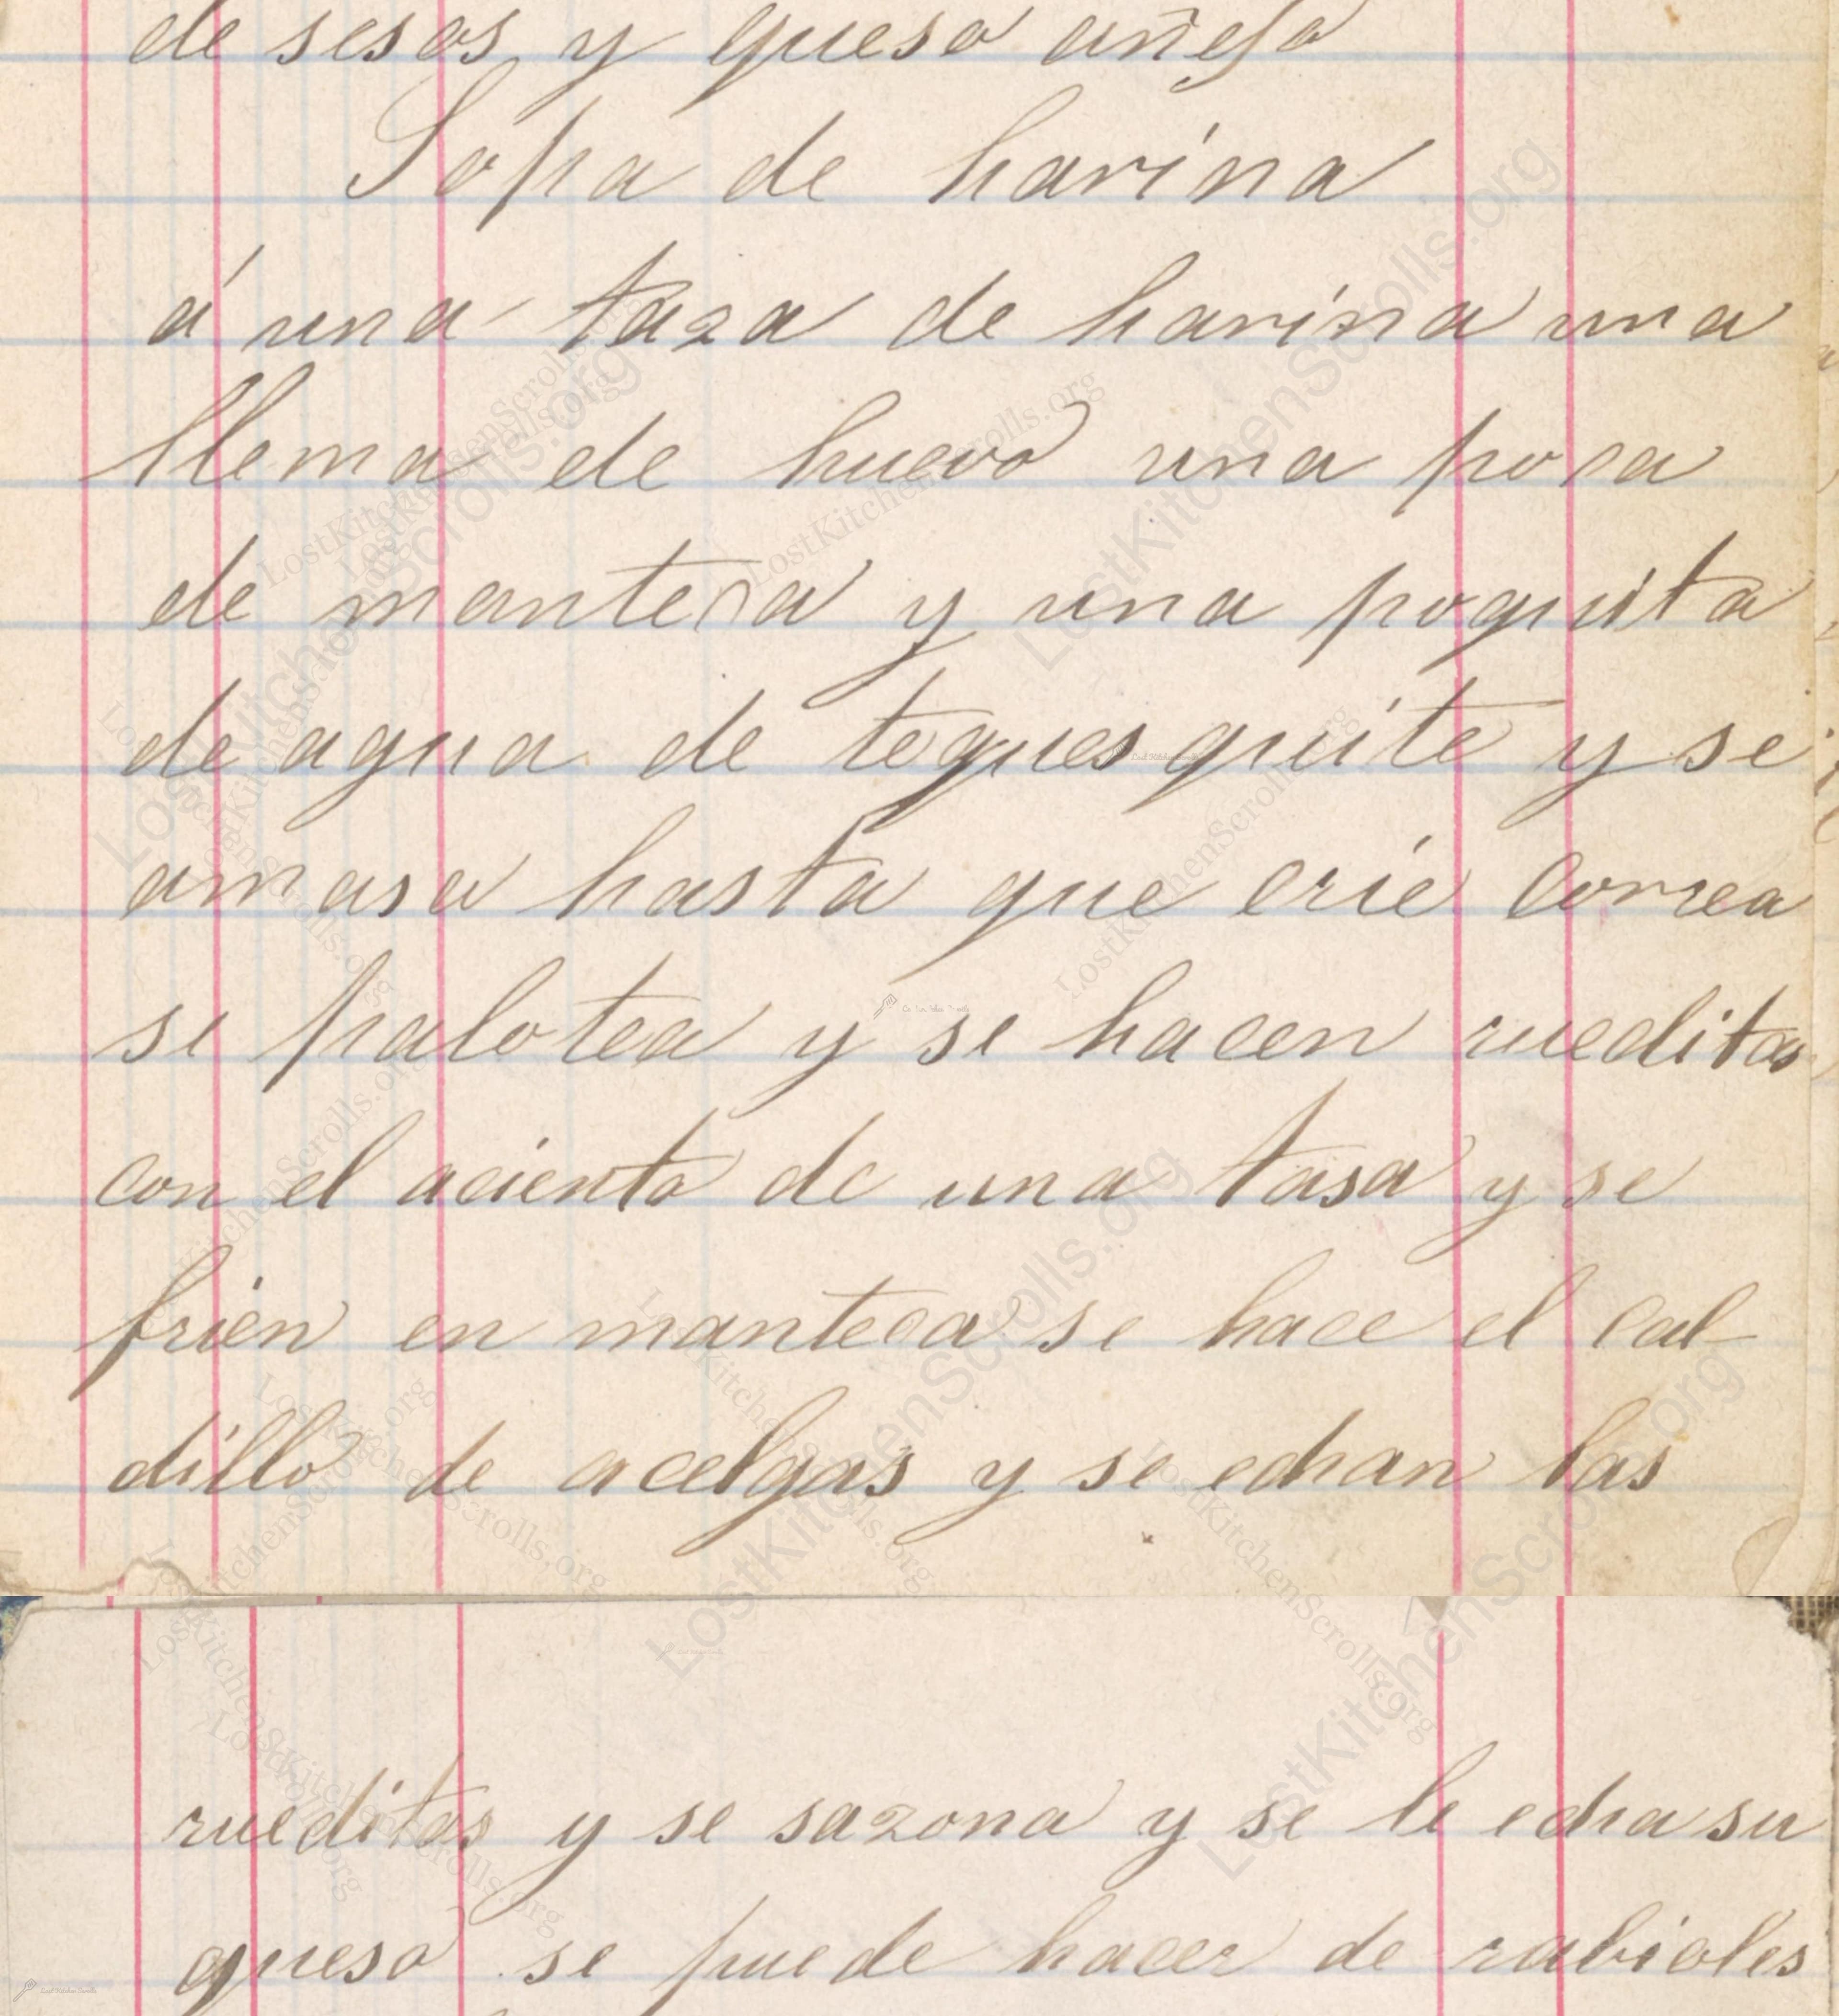 de sesos y queso añejo
Sopa de harina
á una taza de harina una
llema de huevo una poca
de manteca y una poquita
de agua de tequesquite y se
amasa hasta que crie correa
se palotea y se hacen rueditas
con el aciento de una tasa y se
frien en manteca se hace el cal
dillo de acelgas y se echan las
rueditas y se sazona y se le echa su
queso se puede hacer de rabioles